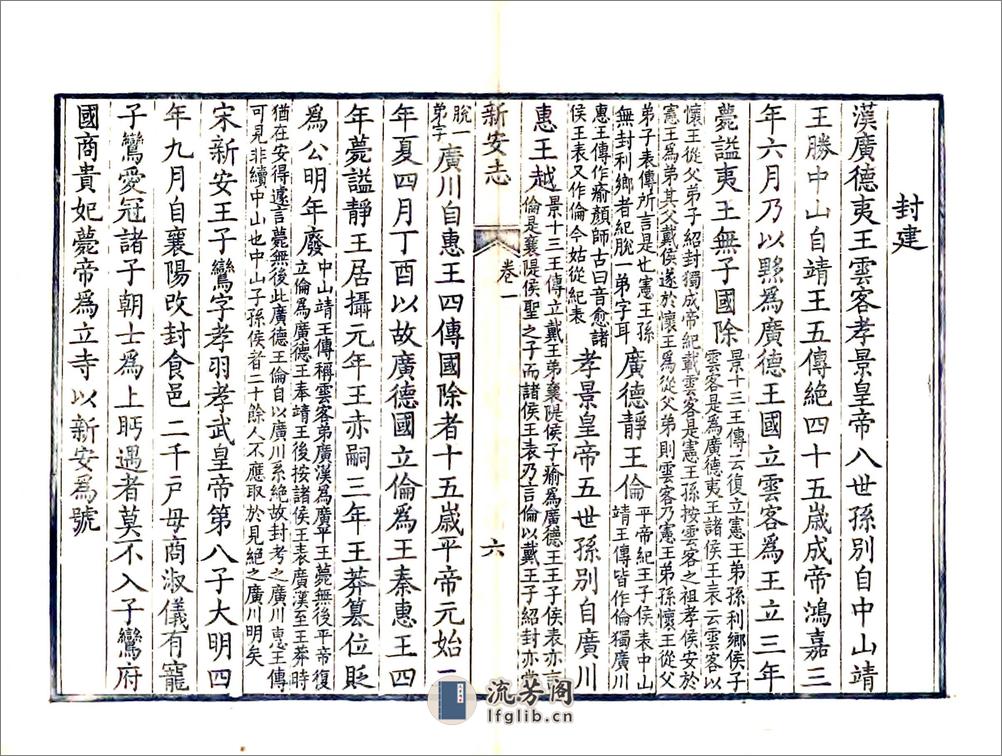 封建
漢廣德夷王雲客孝景皇帝八世孫別自中山靖
王勝中山自靖王五傳絕四十五歲成帝鴻嘉三
年六月乃以黟爲廣德王國立雲客爲王立三年
薨謚夷王無子國除景十三王傳云復立憲王弟孫利鄉侯子
雲客是爲廣德夷王諸侯王表云雲客以
懷王從父弟子紹封獨成帝紀載雲客是憲王孫按雲客之祖孝侯安於
憲王爲弟其父戴侯遂於懷王爲從父弟則雲客乃憲王弟孫懷王從父
弟子表傳所言是也憲王孫
無封利鄉者紀脫一弟字耳
廣德靜王倫平帝紀王子侯表中山
靖王傳皆作倫獨廣川
惠王傳作瘉顏師古曰音愈諸
侯王表又作倫今姑從紀表
孝景皇帝五世孫別自廣川
惠王越景十三王傳立戴王弟襄隄侯子瘉爲廣德王王子侯表亦言
倫是襄隄侯聖之子而諸侯王表乃言倫以戴王子紹封亦當
新安志 卷一 六
脫一
弟字
廣川自惠王四傳國除者十五歲平帝元始二
年夏四月丁酉以故廣德國立倫爲王秦惠王四
年薨謚靜王居攝元年王赤嗣三年王莽篡位貶
爲公明年廢中山靖王傳稱雲客弟廣漢爲廣平王薨無後平帝復
立倫爲廣德王奉靖王後按諸侯王表廣漢至王莽時
猶在安得遽言薨無後此廣德王倫自以廣川系絕故封考之廣川惠王傳
可見非續中山也中山子孫侯者二十餘人不應取於見絕之廣川明矣
宋新安王子鸞字孝羽孝武皇帝第八子大明四
年九月自襄陽改封食邑二千戶母商淑儀有寵
子鸞愛冠諸子朝士爲上眄遇者莫不入子鸞府
國商貴妃薨帝爲立寺以新安爲號
流芳阁
lfglib.cn